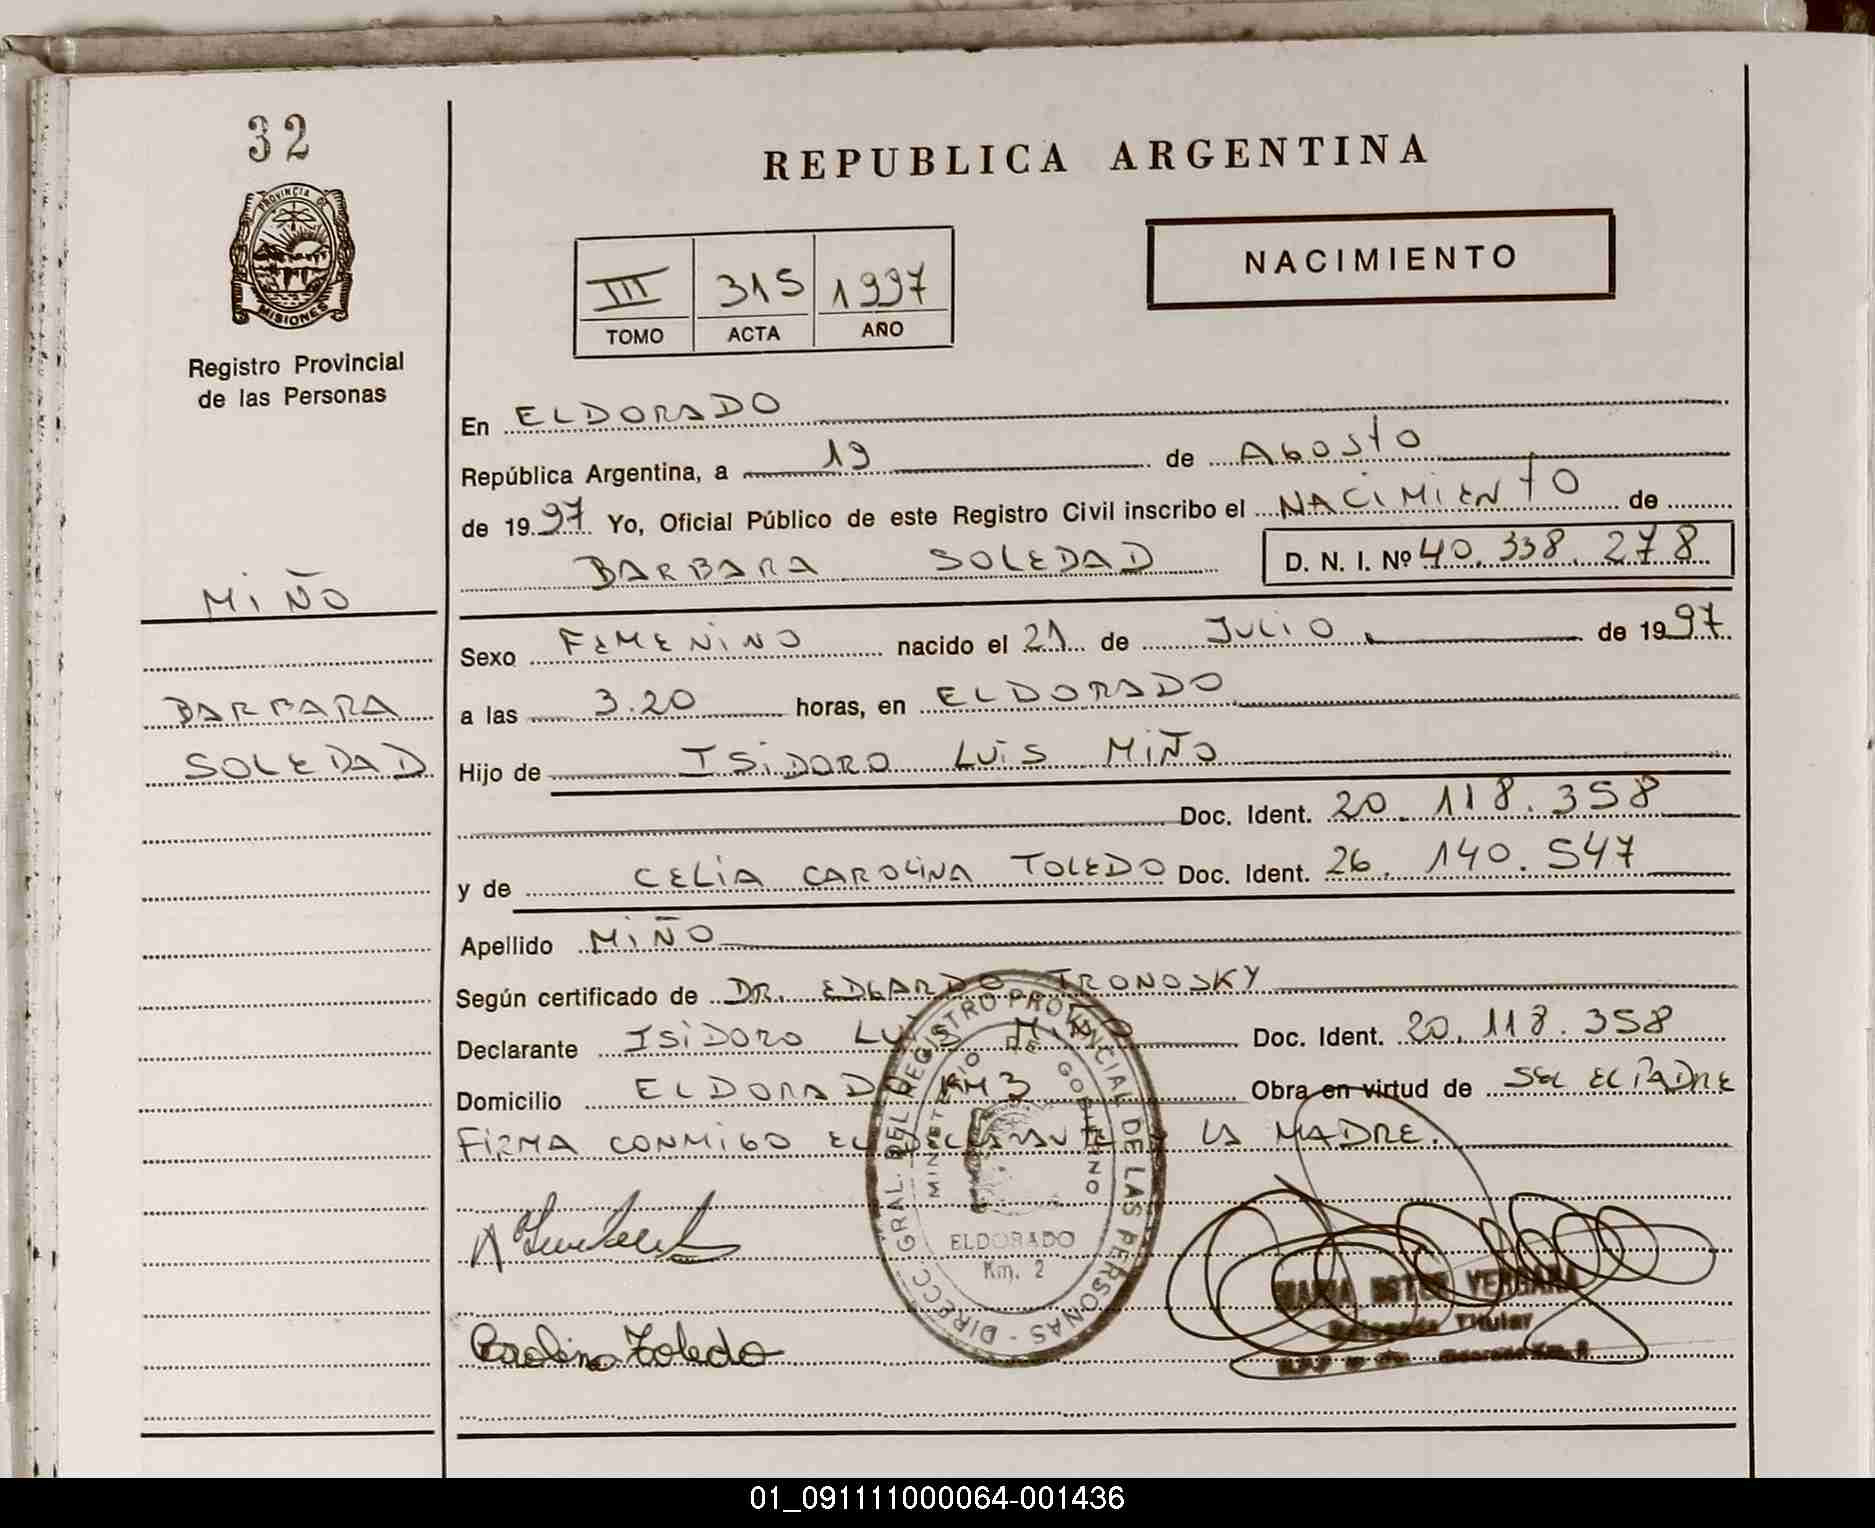 32
PROVINCIA DE
MISIONES
Registro Provincial
de las Personas
MIÑO
BARBARA
SOLEDAD
REPUBLICA ARGENTINA
III 315 1997
TOMO ACTA AÑO
NACIMIENTO
En ELDORADO
República Argentina, a 19 de AGOSTO
de 1997 Yo, Oficial Público de este Registro Civil inscribo el NACIMIENTO de
BARBARA SOLEDAD D. N. I. Nº 40.338.278
Sexo FEMENINO nacido el 21 de JULIO de 1997
a las 3.20 horas, en ELDORADO
Hijo de ISIDORO LUIS MIÑO
Doc. Ident. 20.118.358
y de CELIA CAROLINA TOLEDO Doc. Ident. 26.140.547
Apellido MIÑO
Según certificado de DR. EDGARDO TRONOSKY
Declarante ISIDORO LUIS MIÑO Doc. Ident. 20.118.358
Domicilio ELDORADO KM 3 Obra en virtud de SER EL PADRE
FIRMA CONMIGO EL DECLARANTE Y LA MADRE.
DIRECC. GRAL. DEL REGISTRO PROVINCIAL DE LAS PERSONAS
MINISTERIO DE GOBIERNO
ELDORADO
Km. 2
Carolina Toledo
MARIA ESTER VERGARA
Delegada Titular
01_091111000064-001436